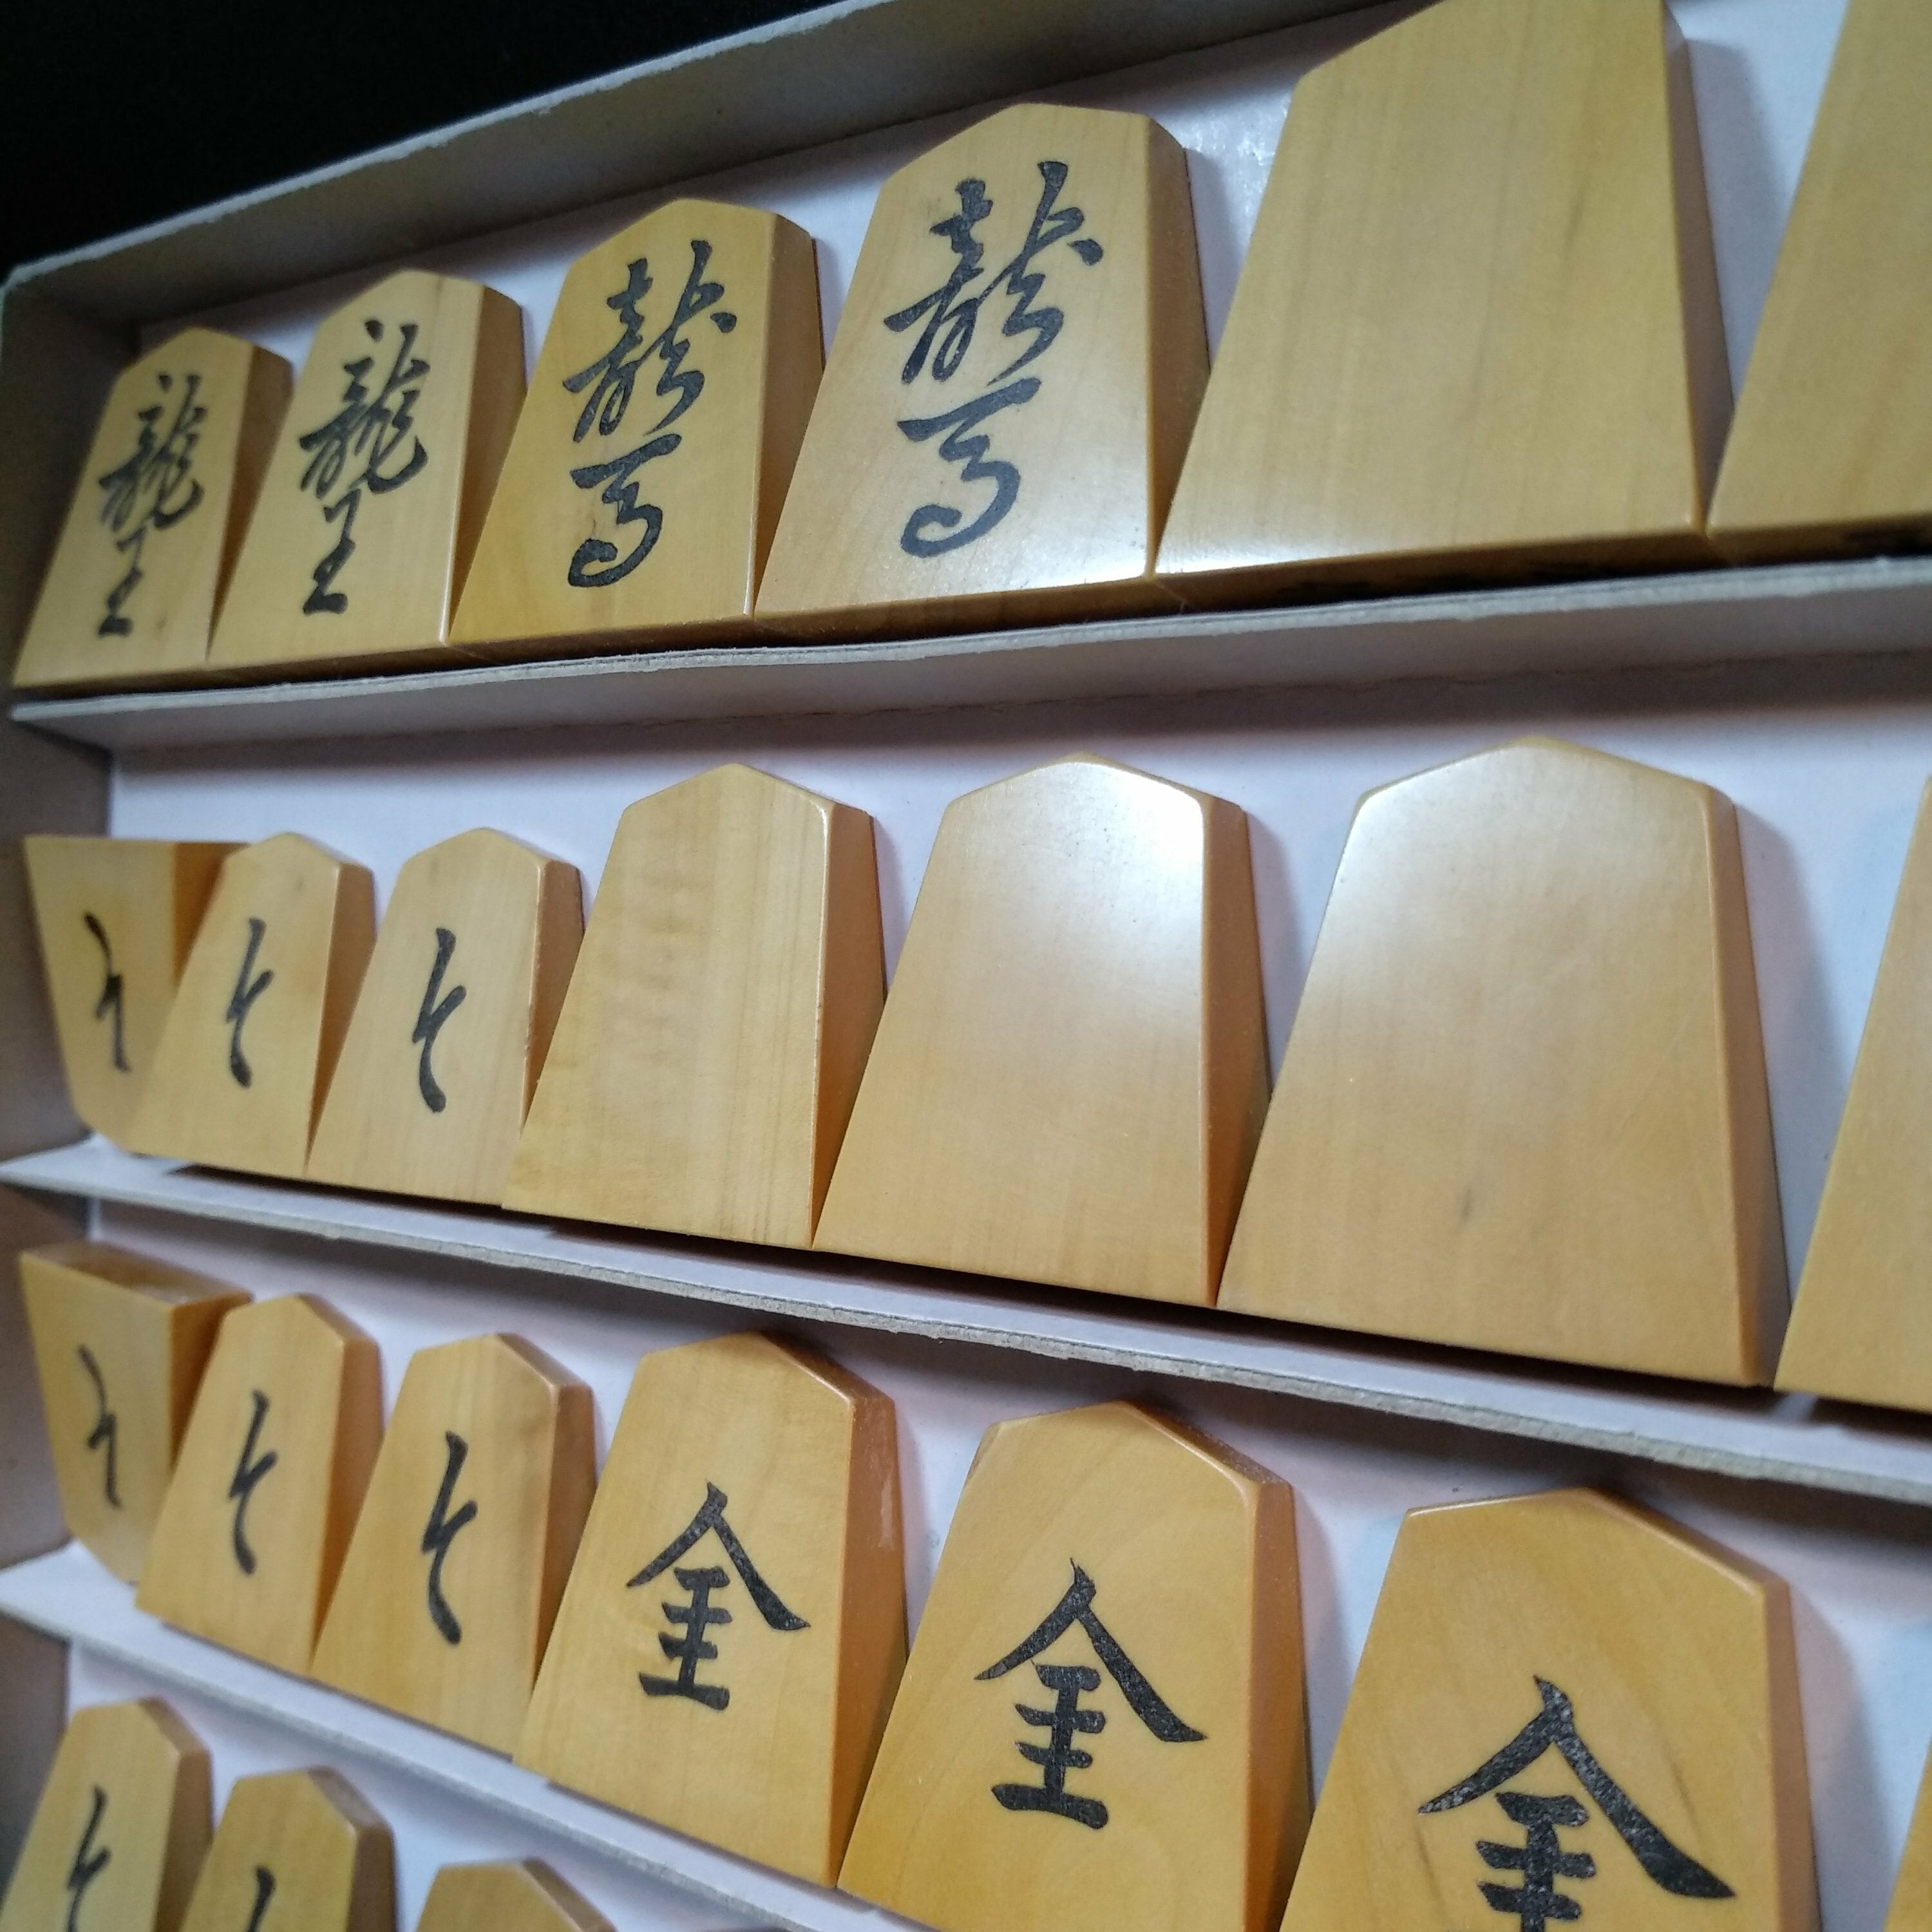 龍王
龍王
龍馬
龍馬
と
と
と
と
と
と
金
金
金
と